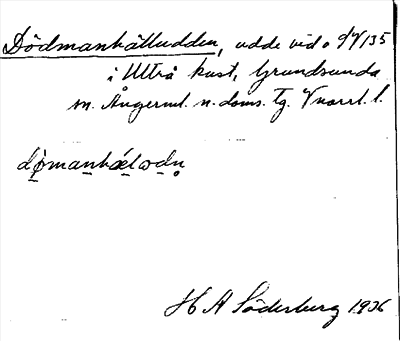 Dödmanhälludden, udde vid
i Ultrå kust, Grundsunda
sn. Ångerml. n. doms. tg. Vnorrl. l.
dömanhælodn
H A Söderberg 1936